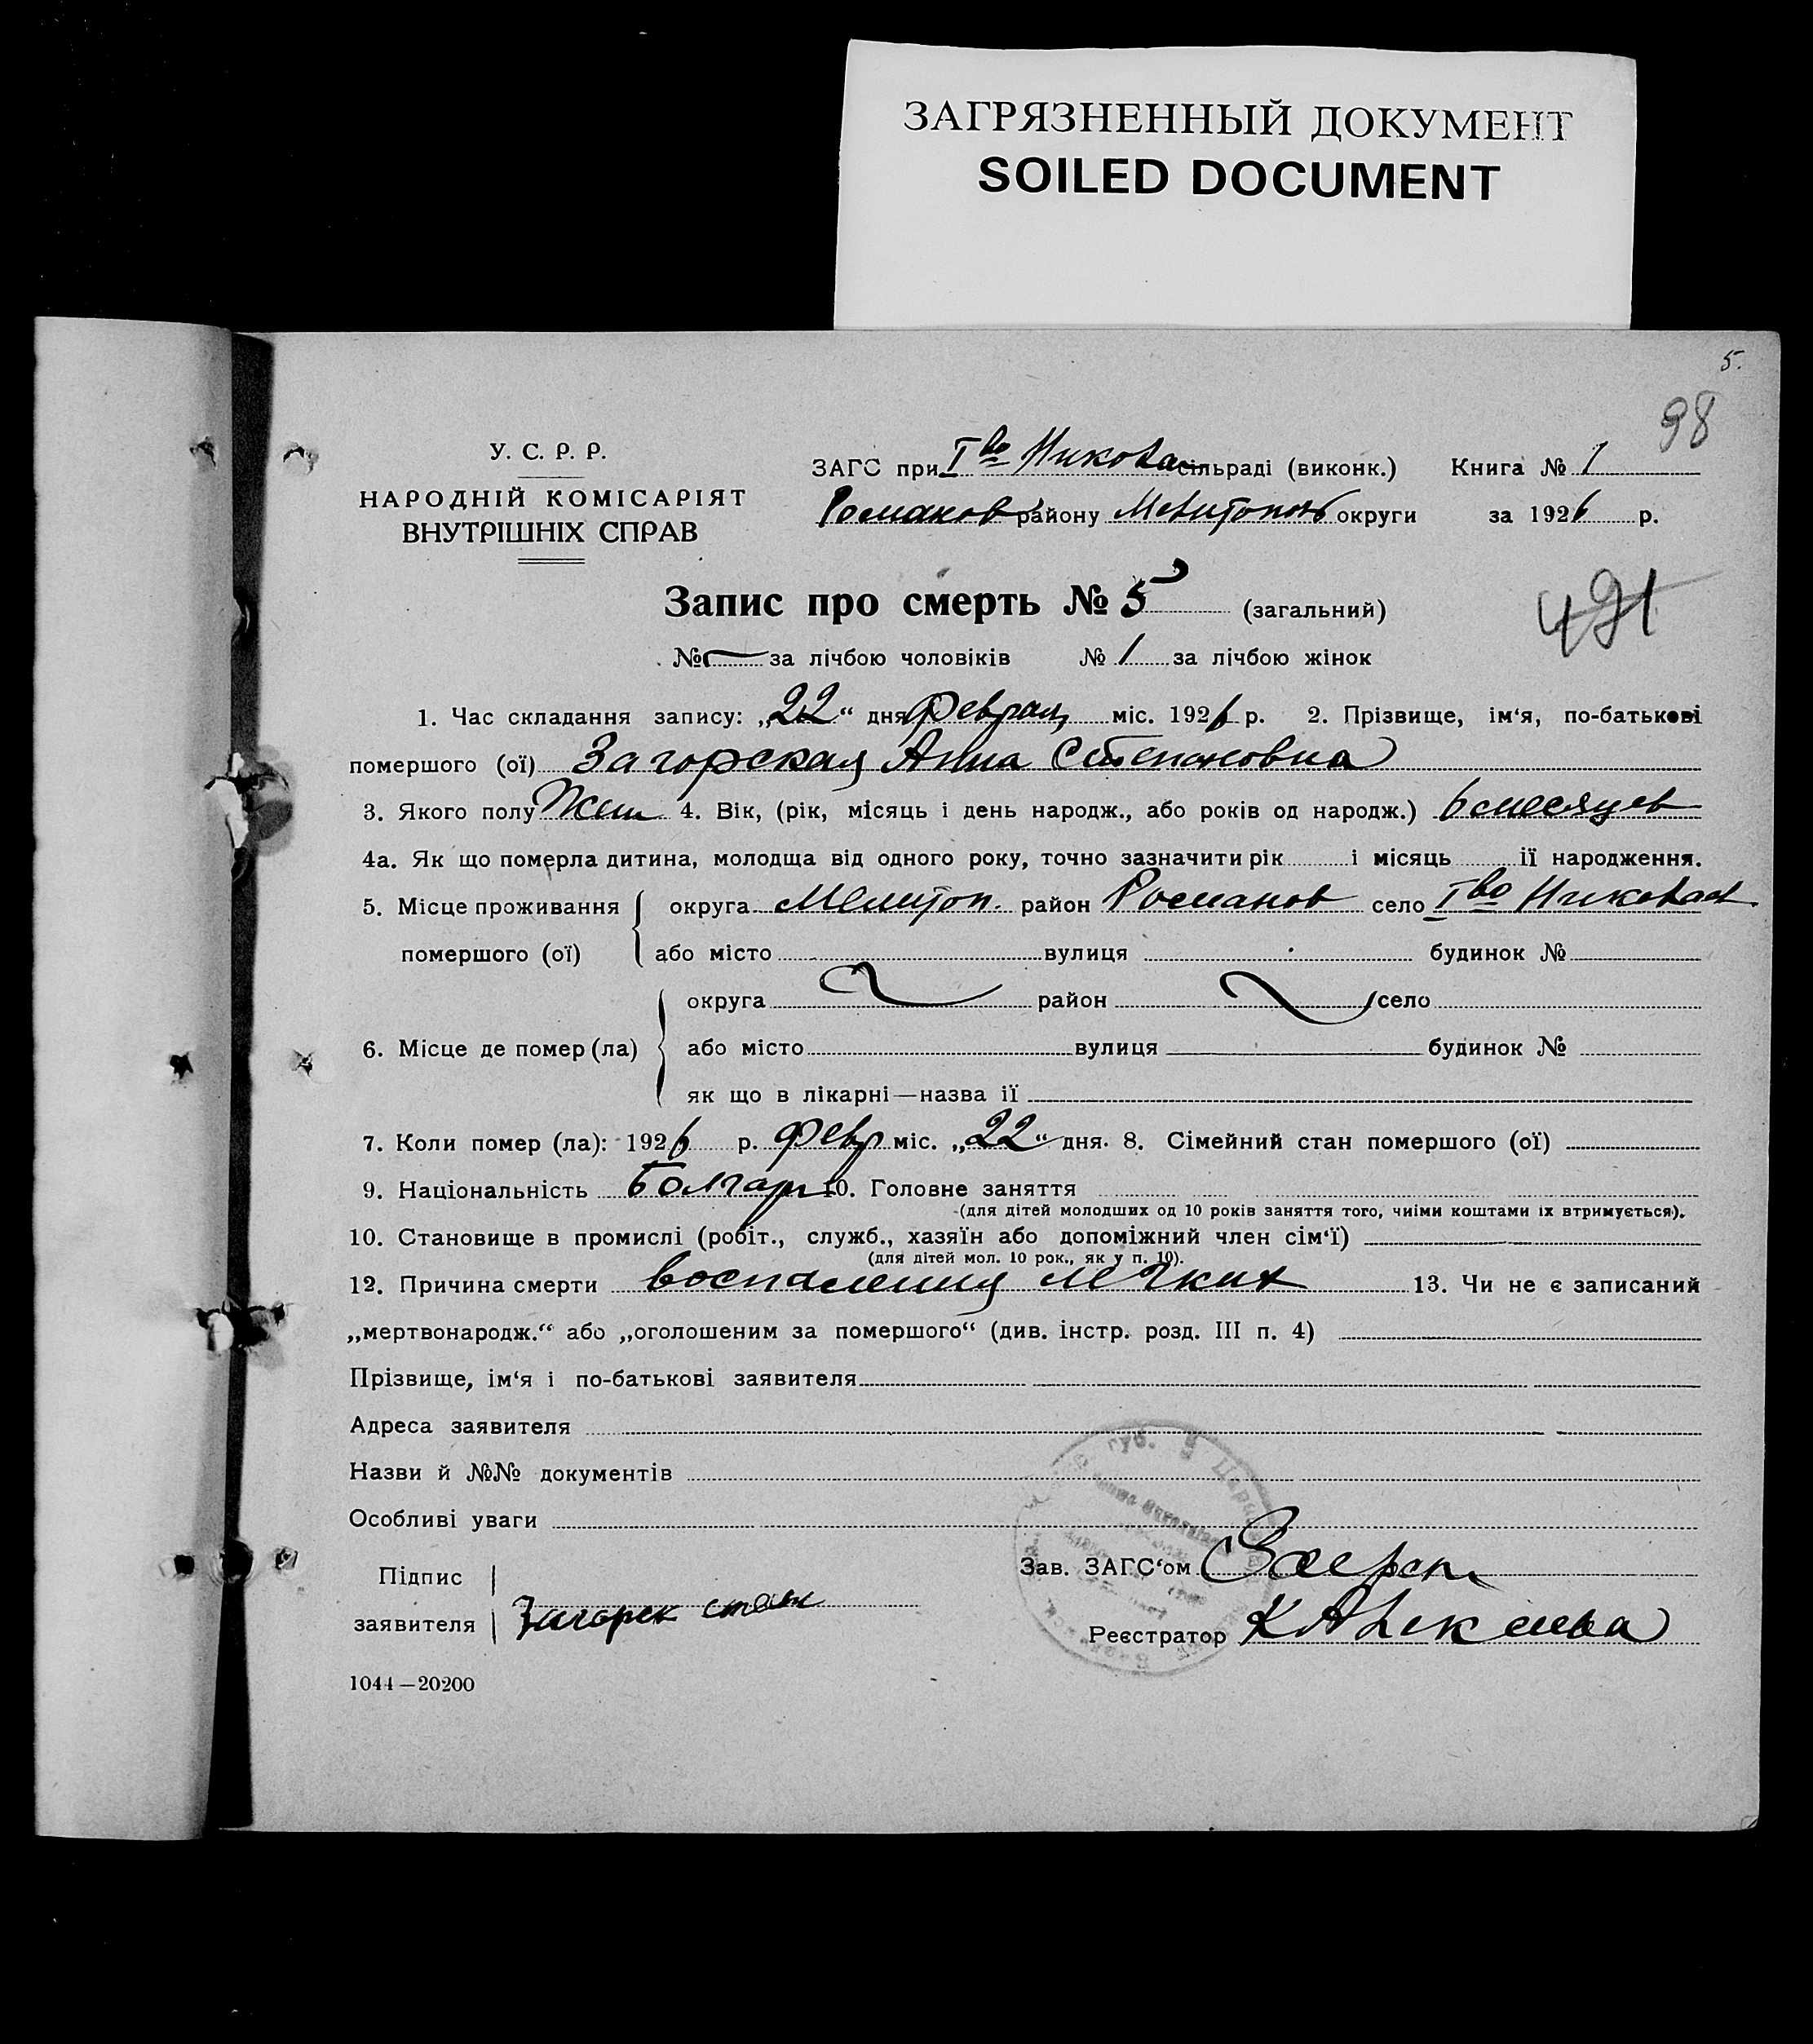 ЗАГРЯЗНЕННЫЙ ДОКУМЕНТ
SOILED DOCUMENT
5.
98
У. С. Р. Р.
НАРОДНІЙ КОМІСАРІЯТ
ВНУТРІШНІХ СПРАВ
ЗАГС при Iво Николаев сільраді (виконк.) Книга № 1
Романов району Мелитополь округи за 1926 р.
Запис про смерть № 5 (загальний)
491
№ — за лічбою чоловіків № 1 за лічбою жінок
1. Час складання запису: „22“ дня Февраля міс. 1926 р. 2. Прізвище, ім‘я, по-батькові
помершого (ої) Загорская Анна Степановна
3. Якого полу Жен 4. Вік, (рік, місяць і день народж., або років од народж.) 6 месяцев
4а. Як що померла дитина, молодща від одного року, точно зазначити рік і місяць ії народження.
5. Місце проживання округа Мелитоп. район Романов село Iво Николаев
помершого (ої) або місто вулиця будинок №
округа район село
6. Місце де помер (ла) або місто вулиця будинок №
як що в лікарні—назва ії
7. Коли помер (ла): 1926 р. Февр міс. „22“ дня. 8. Сімейний стан помершого (ої)
9. Національність Болгар 10. Головне заняття
(для дітей молодших од 10 років заняття того, чиїми коштами їх втримується).
10. Становище в промислі (робіт., служб., хазяїн або допоміжний член сім‘ї)
(для дітей мол. 10 рок., як у п. 10).
12. Причина смерти воспаления легких 13. Чи не є записаний
„мертвонародж.“ або „оголошеним за помершого“ (див. інстр. розд. III п. 4)
Прізвище, ім‘я і по-батькові заявителя
Адреса заявителя
Назви й №№ документів
Особливі уваги
Підпис
заявителя Загорск
Зав. ЗАГС‘ом
Реєстратор
1044—20200